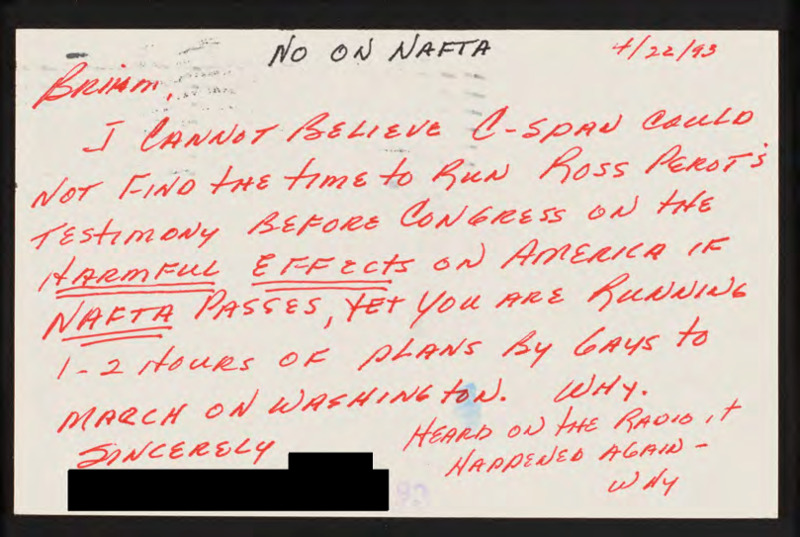 NO ON NAFTA
4/22/93
BRIAN,
I CANNOT BELIEVE C-SPAN COULD
NOT FIND THE TIME TO RUN ROSS PEROT'S
TESTIMONY BEFORE CONGRESS ON THE
HARMFUL EFFECTS ON AMERICA IF
NAFTA PASSES, YET YOU ARE RUNNING
1-2 HOURS OF PLANS BY GAYS TO
MARCH ON WASHINGTON. WHY.
SINCERELY
HEARD ON THE RADIO IT
HAPPENED AGAIN -
WHY
93